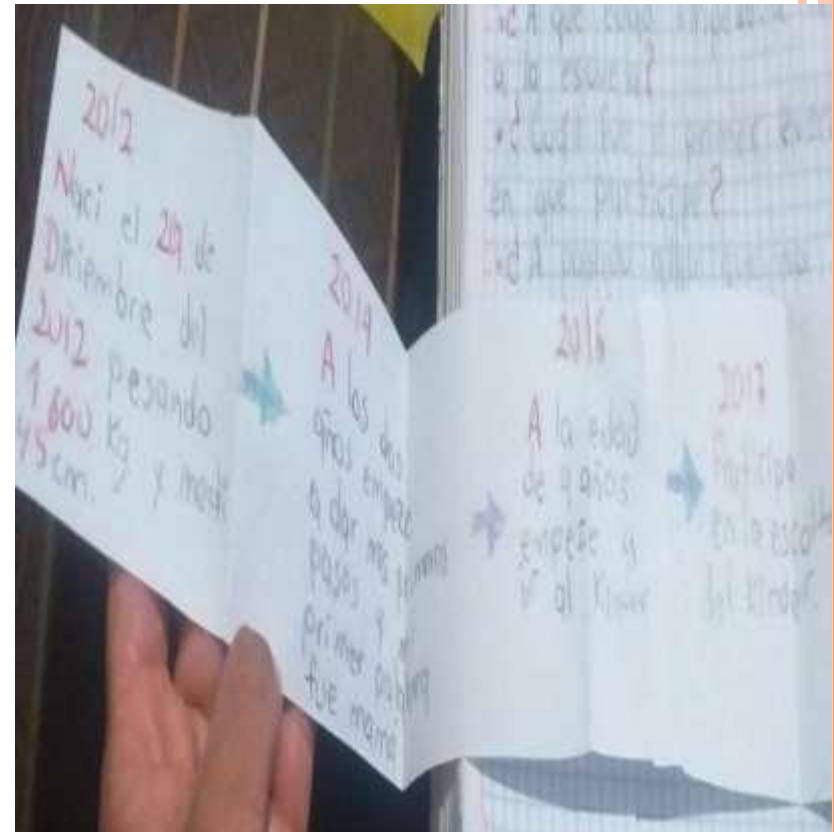 ¿A que edad
a la escuela?
¿Cuál fue el primer
en que participe?
2012
Naci el 29 de
Diciembre del
2012 pesando
1 600 Kg y medi
45 cm.
2014
A los dos
años empeze
a dar mis primeros
pasos y mi
primer palabra
fue mamá
2016
A la edad
de 4 años
empeze a
ir al Kinder
2017
Participe
en la escolta
del Kinder